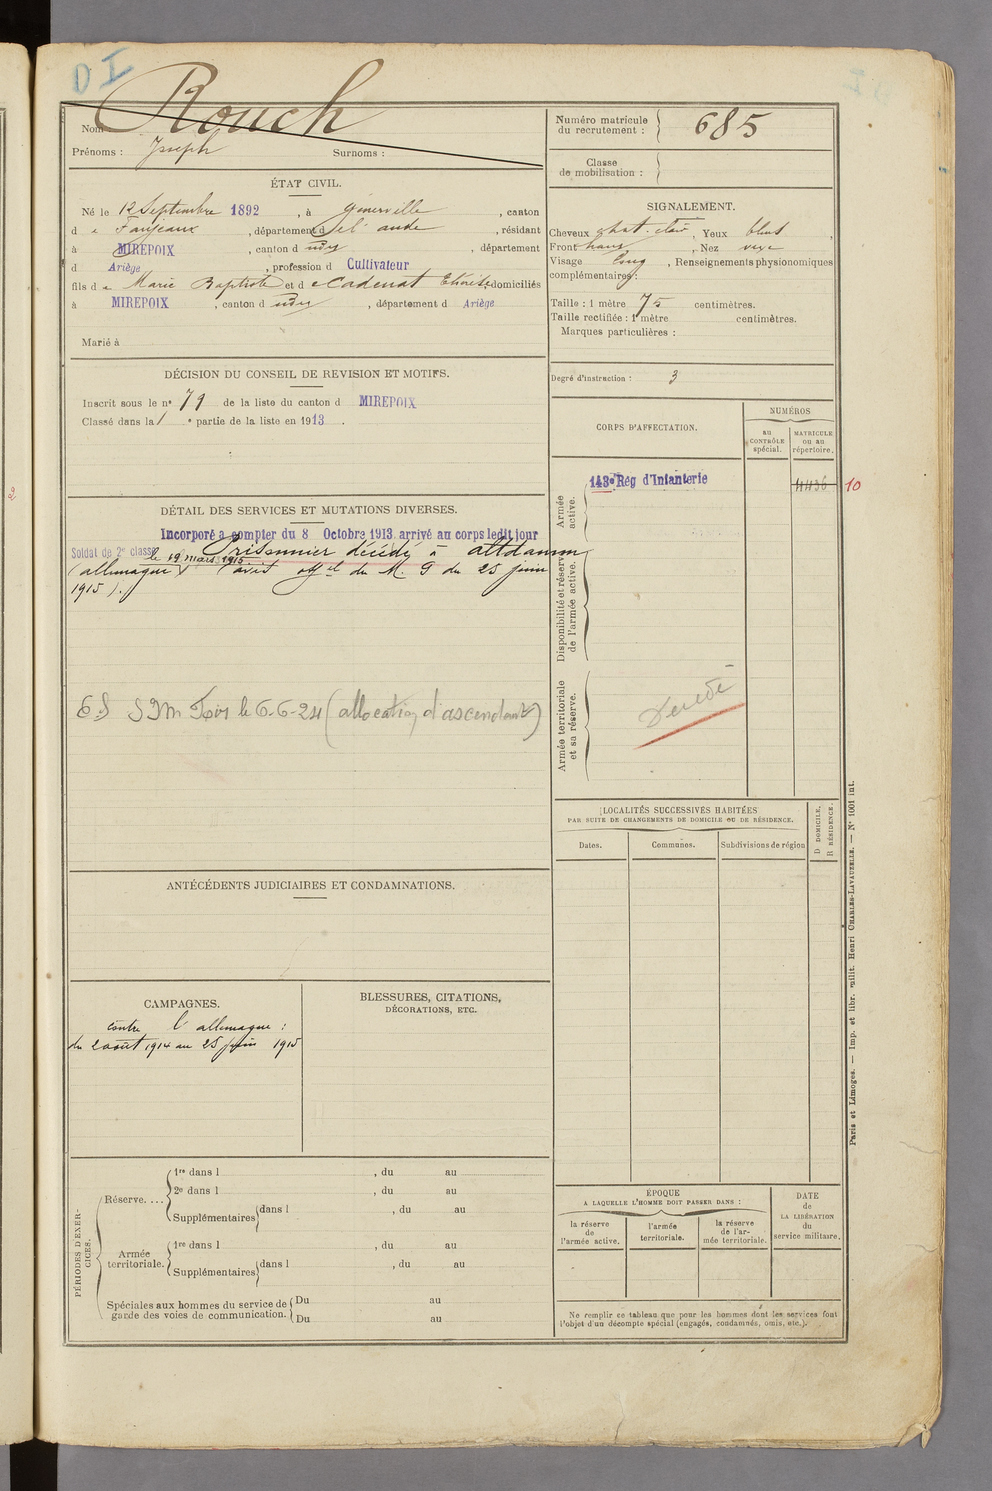 D I
Rouch
Nom
Prénoms : Joseph Surnoms :
Numéro matricule
du recrutement : 685
Classe
de mobilisation :
ÉTAT CIVIL.
Né le 12 Septembre 1892, à Generville, canton
d e Fanjeaux, département d e l'aude, résidant
à MIREPOIX, canton d udit, département
d Ariège, profession d Cultivateur
fils d e Marie Baptiste et d e Cadenat domiciliés
à MIREPOIX, canton d udit, département d Ariège
Marié à
SIGNALEMENT.
Cheveux chat. clair, Yeux bleus
Front, Nez
Visage long, Renseignements physionomiques
complémentaires :
Taille : 1 mètre 75 centimètres.
Taille rectifiée : 1 mètre centimètres.
Marques particulières :
DÉCISION DU CONSEIL DE REVISION ET MOTIFS.
Inscrit sous le n° 79 de la liste du canton d MIREPOIX
Classé dans la 1 e partie de la liste en 1913.
Degré d'instruction : 3
CORPS D'AFFECTATION.
NUMÉROS
au
CONTRÔLE
spécial.
MATRICULE
ou au
répertoire.
Armée
active.
143e Rég d'Infanterie 4436 10
Disponibilité et réserve
de l'armée active.
Armée territoriale
et sa réserve.
Décédé
DÉTAIL DES SERVICES ET MUTATIONS DIVERSES.
Incorporé à compter du 8 Octobre 1913. arrivé au corps ledit jour
Soldat de 2e classe le 19 mars 1915 Prisonnier décédé à altdamm
(allemagne) (avis offel du M. G du 25 juin
1915).
6-6-24 (allocation d'ascendant)
LOCALITÉS SUCCESSIVES HABITÉES
PAR SUITE DE CHANGEMENTS DE DOMICILE OU DE RÉSIDENCE.
D DOMICILE.
R RÉSIDENCE.
Dates. Communes. Subdivisions de région
ANTÉCÉDENTS JUDICIAIRES ET CONDAMNATIONS.
CAMPAGNES.
contre l'allemagne :
du 2 août 1914 au 25 juin 1915
BLESSURES, CITATIONS,
DÉCORATIONS, ETC.
PÉRIODES D'EXER-
CICES.
Réserve....
1re dans l, du au
2e dans l, du au
Supplémentaires dans l, du au
Armée
territoriale.
1re dans l, du au
Supplémentaires dans l, du au
Spéciales aux hommes du service de
garde des voies de communication.
Du au
Du au
ÉPOQUE
A LAQUELLE L'HOMME DOIT PASSER DANS :
la réserve
de
l'armée active.
l'armée
territoriale.
la réserve
de l'ar-
mée territoriale.
DATE
de
LA LIBÉRATION
du
service militaire.
Ne remplir ce tableau que pour les hommes dont les services font
l'objet d'un décompte spécial (engagés, condamnés, omis, etc.).
Paris et Limoges. — Imp. et libr. milit. Henri CHARLES-LAVAUZELLE. — N° 1001 int.